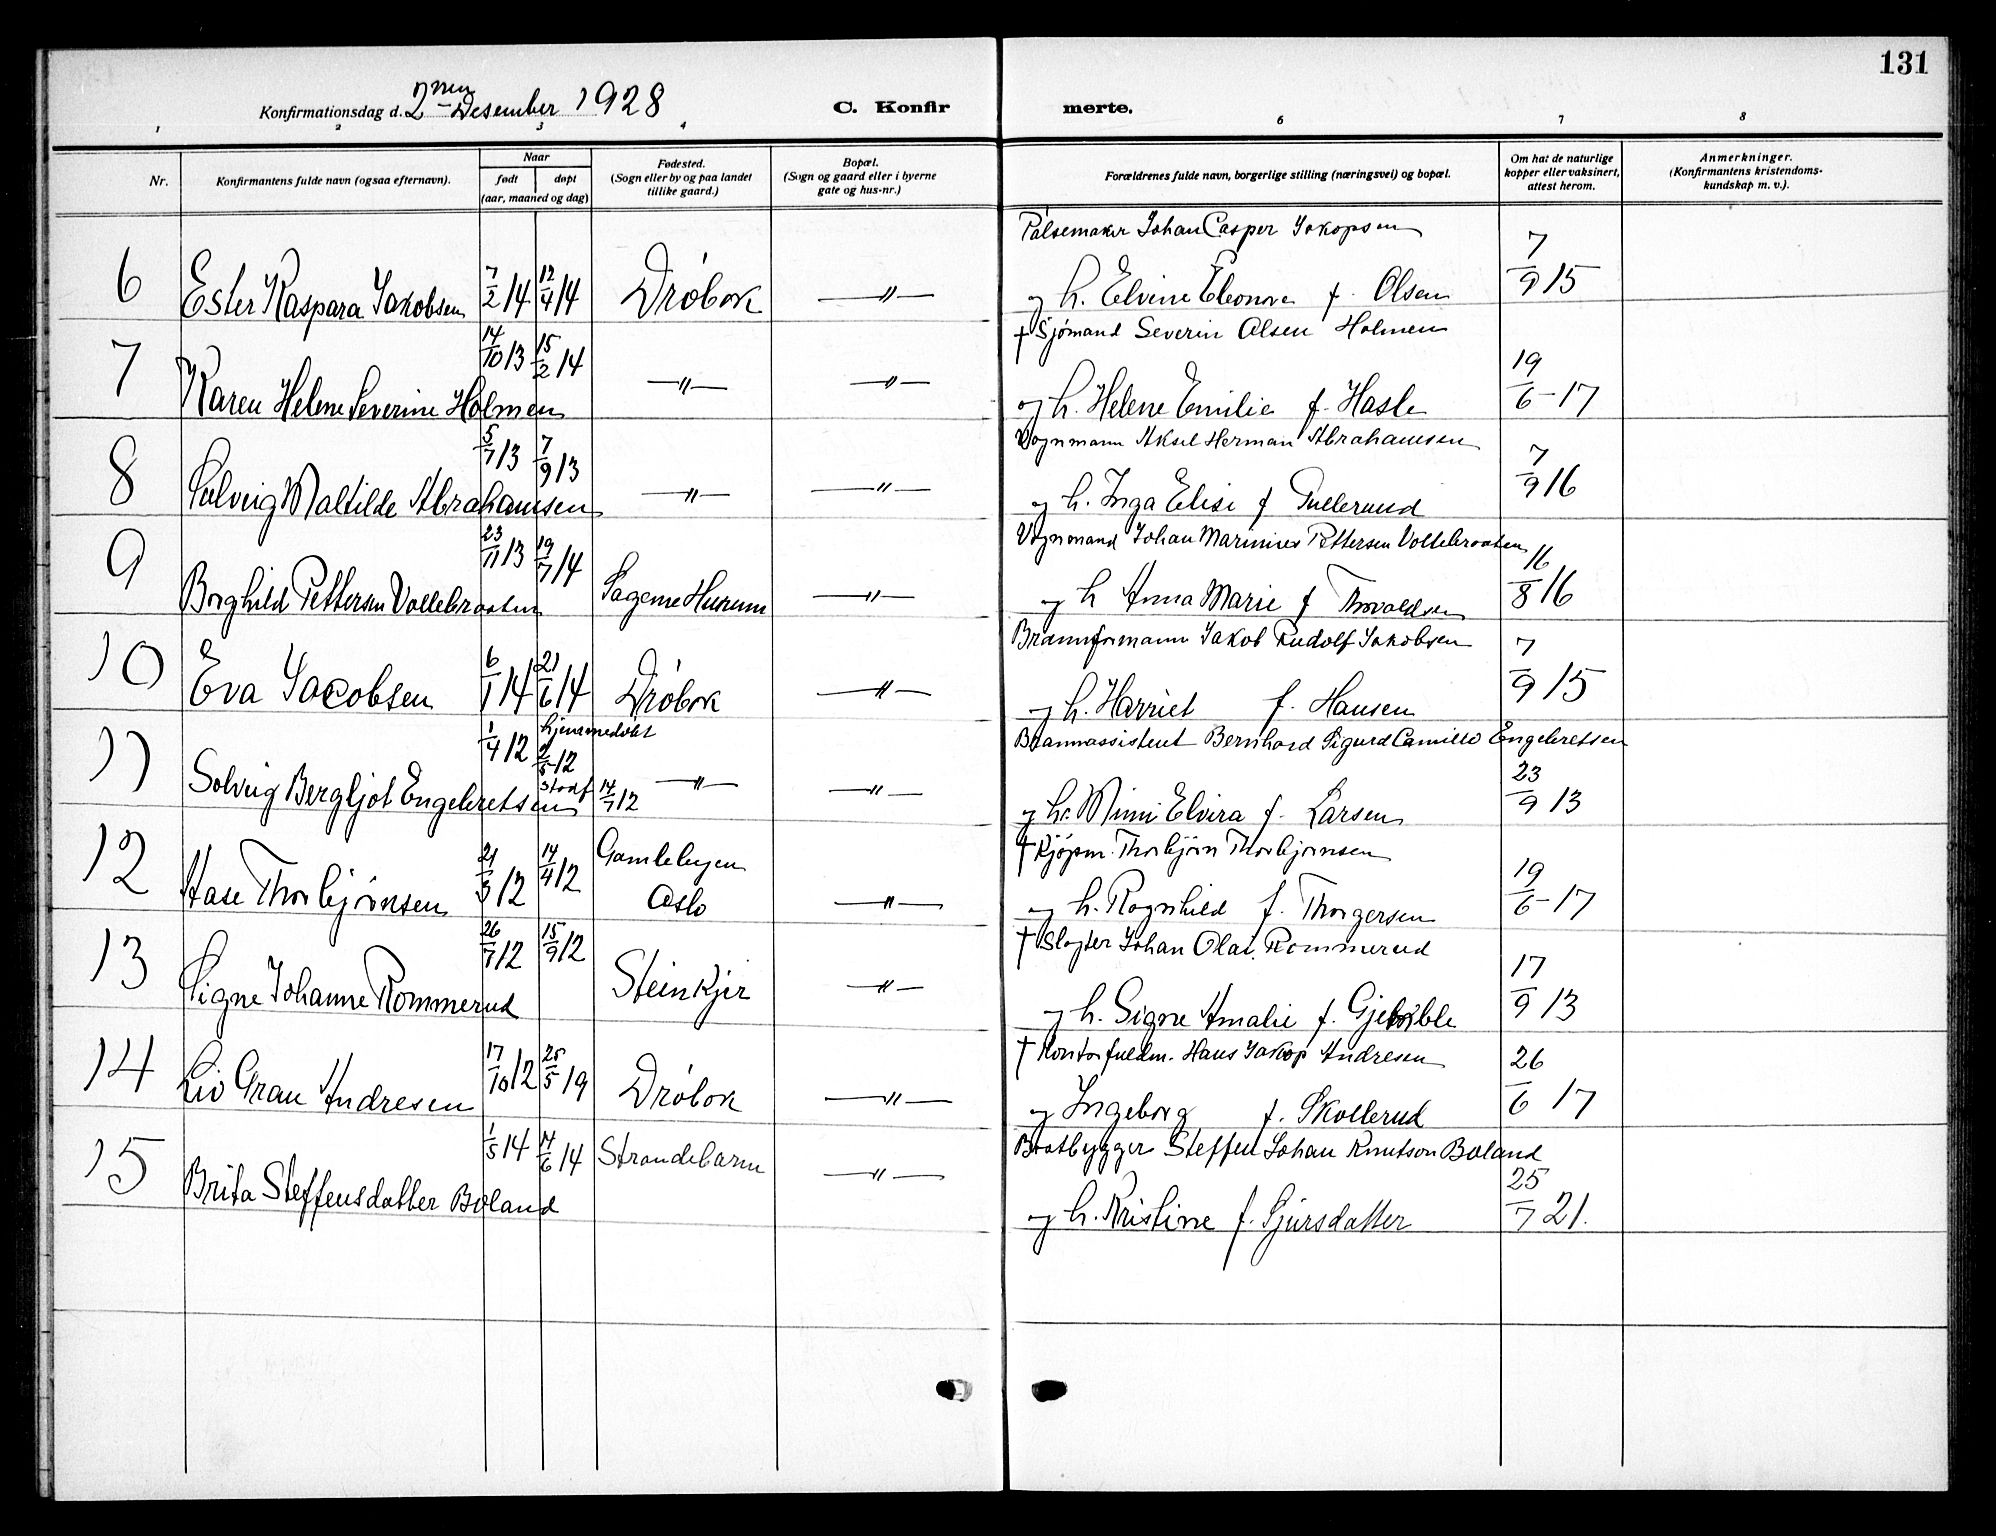 131
Konfirmationsdag d. 2nen Desember 1928
C. Konfirmerte.
1 2 3 4 6 7 8
Nr.
Konfirmantens fulde navn (ogsaa efternavn).
Naar
født døpt
(aar, maaned og dag)
Fødested.
(Sogn eller by og paa landet
tillike gaard.)
Bopæl.
(Sogn og gaard eller i byerne
gate og hus-nr.)
Forældrenes fulde navn, borgerlige stilling (næringsvei) og bopæl.
Om hat de naturlige
kopper eller vaksinert,
attest herom.
Anmerkninger.
(Konfirmantens kristendoms-
kundskap m. v.).
Pølsemaker Johan Casper Jakopsen
6 Ester Kaspara Jakobsen 7/2 14 12/4 14 Drøbak —"— og h. Elvine Eleonora f. Olsen 7/9 15
† Sjømand Severin Olsen Holmen
7 Karen Helene Severine Holmen 14/10 13 15/2 14 —"— —"— og h. Helene Emilie f. Hasle 19/6-17
Vognmann Aksel Herman Abrahamsen
8 Solveig Maltilde Abrahamsen 5/7 13 7/9 13 —"— —"— og h. Inga Elise f Tullerud 7/9 16
Vognmand Johan Marinius Pettersen Vollebraaten
9 Borghild Pettersen Vollebraaten 23/11 13 19/7 14 Sagene Hurum —"— og h Anna Marie f Thorvaldsen 16/8 16
Brannformann Jakob Rudolf Jakobsen
10 Eva Jacobsen 6/1 14 21/6 14 Drøbak —"— og h. Harriet f. Hansen 7/9 15
Brannassistent Bernhard Sigurd Camillo Engebretsen
11 Solveig Bergljot Engebretsen 1/4 12 hjemmedøbt 2/5 12 stadf 14/7 12 —"— —"— og h. Mimi Elvira f. Larsen 23/9 13
† Kjøpm. Thorbjørn Thorbjørnsen
12 Aase Thorbjørnsen 21/3 12 14/4 12 Gamlebyen Oslo —"— og h. Ragnhild f. Thorgersen 19/6-17
† Slagter Johan Olav Rommerud
13 Signe Johanne Rommerud 26/7 12 15/9 12 Steinkjer —"— og h. Signe Amalie f. 17/9 13
† Kontorfuldm. Hans Jakop Andresen
14 Liv Grau Andresen 17/10 12 25/5 19 Drøbak —"— og Ingeborg f. Skollerud 26/6 17
Baatbygger Steffen Johan Knutson Boland
15 Brita Steffensdatter Boland 1/5 14 14/6 14 Strandebarm —"— og h. Kristine f. Sjursdatter 25/7 21.